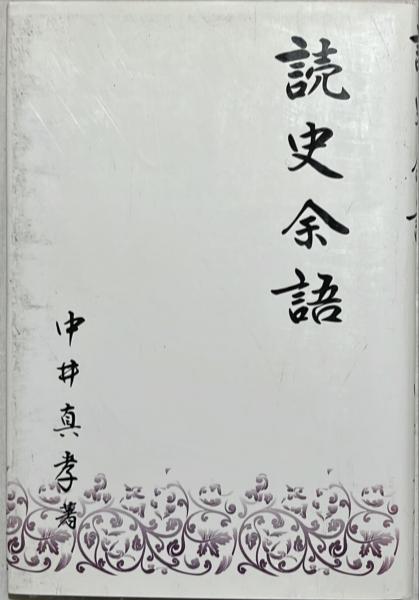 読史余語
中井真孝著